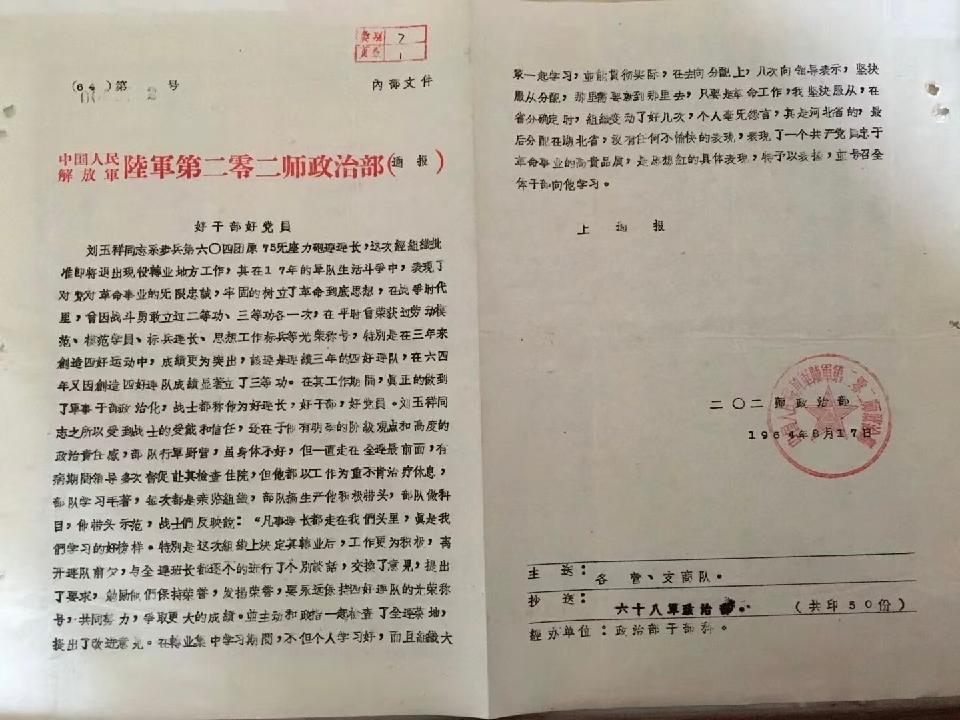 类别 2
頁数 1
(64)第 2 号
內部文件
中国人民
解放軍
陸軍第二零二师政治部(通报)
好干部好党員
刘玉祥同志系步兵第六〇四团原75无座力砲連連长，这次經組織批
准即将退出現役轉业地方工作，其在17年的軍队生活斗爭中，表現了
对党对革命事业的无限忠誠，牢固的树立了革命到底思想，在战爭时代
里，曾因战斗勇敢立过二等功、三等功各一次，在平时曾荣获过劳动模
范、模范学員、标兵連长、思想工作标兵等光荣称号，特別是在三年来
創造四好运动中，成績更为突出，該連是連續三年的四好連队，在六四
年又因創造四好連队成績显著立了三等功。在其工作期間，真正的做到
了軍事干部政治化，战士都称他为好連长，好干部，好党員。刘玉祥同
志之所以受到战士的爱戴和信任，还在于他有明确的阶級观点和高度的
政治責任感，部队行軍野营，虽身体不好，但一直走在全連最前面，有
病期間領导多次督促让其检查住院，但他都以工作为重不肯治疗休息，
部队学习毛著，每次都是亲临組織，部队搞生产他积极带头，部队做科
目，他带头示范，战士們反映說：“凡事連长都走在我們头里，真是我
們学习的好榜样。特別是这次組織上决定其轉业后，工作更为积极，离
开連队前夕，与全連班长都逐个的进行了个別談話，交換了意見，提出
了要求，勉励他們保持荣誉，发揚荣誉，要永远保持四好連队的光荣称
号，共同努力，爭取更大的成績。並主动和政指一起检查了全連菜地，
提出了改进意見。在轉业集中学习期間，不但个人学习好，而且組織大
家一起学习，並能貫彻实际，在去向分配上，几次向領导表示，坚决
服从分配，那里需要就到那里去，只要是革命工作，我坚决服从，在
省分确定时，組織变动了好几次，个人毫无怨言，其是河北省的，最
后分配在湖北省，沒有任何不愉快的表現，表現了一个共产党員忠于
革命事业的高貴品质，是思想紅的具体表現，特予以表揚，並号召全
体干部向他学习。
上 通 报
二〇二师政治部
1964年8月17日
主 送：各 营、支商队。
抄 送：六十八軍政治部。 （共印50份）
經办单位：政治部干部科。